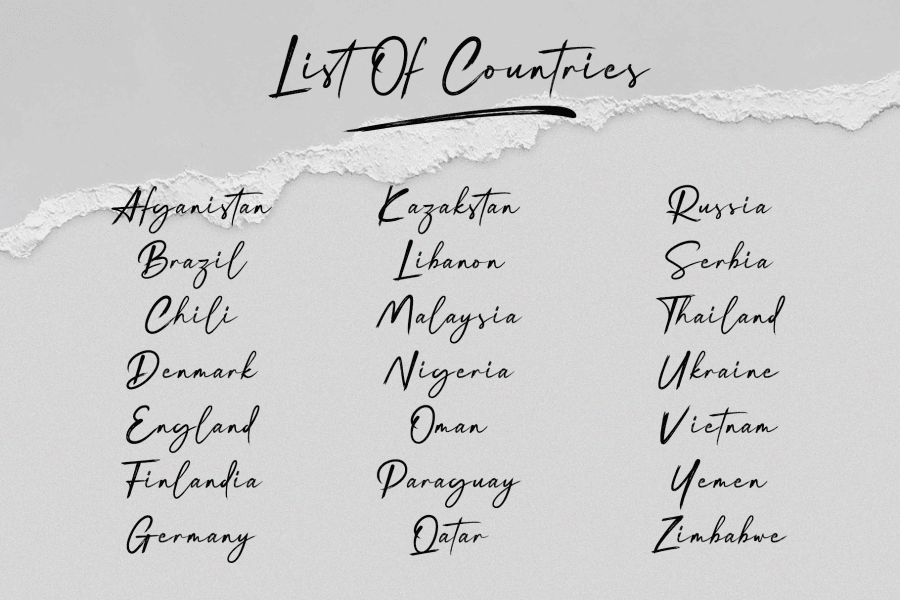 List Of Countries
Afganistan
Brazil
Chili
Denmark
England
Finlandia
Germany
Kazakstan
Libanon
Malaysia
Nigeria
Oman
Paraguay
Qatar
Russia
Serbia
Thailand
Ukraine
Vietnam
Yemen
Zimbabwe